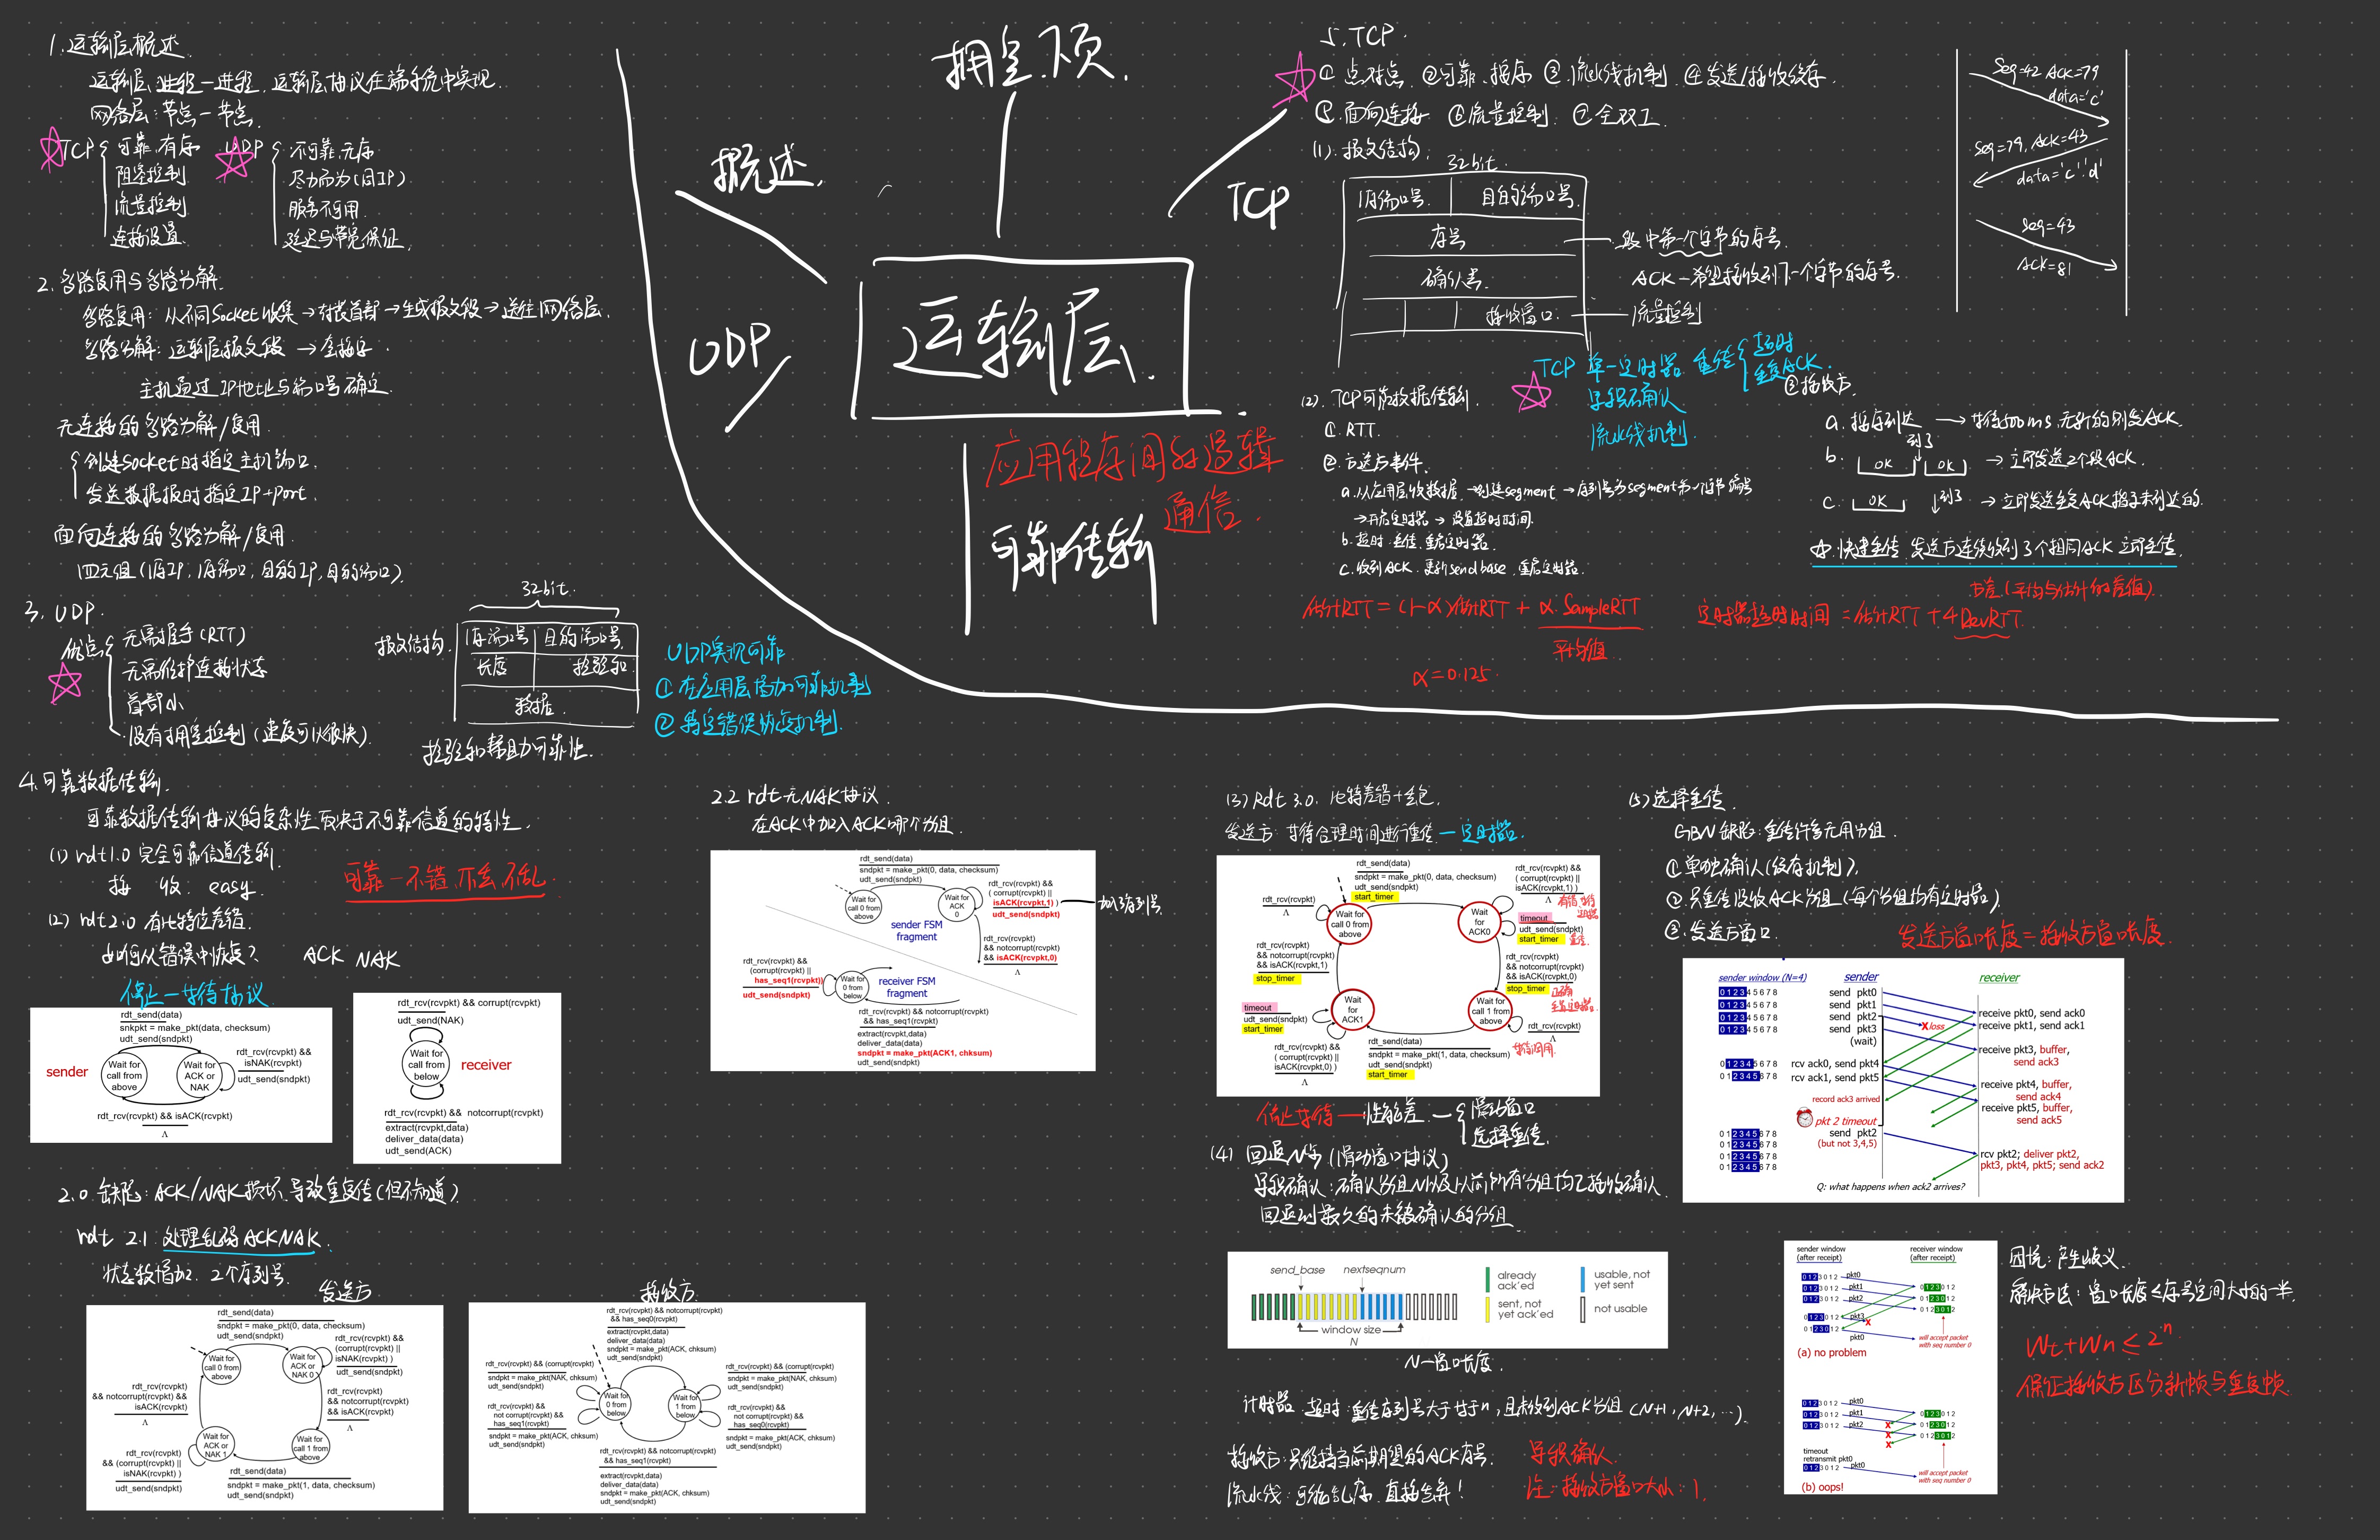 1. 运输层概述.
运输层: 进程—进程. 运输层协议在端系统中实现.
网络层: 节点—节点.
TCP { 可靠.有序
阻塞控制
流量控制
连接设置
UDP { 不可靠.无序
尽力而为(同IP)
服务不可用.
延迟与带宽保证.
2. 多路复用与多路分解.
多路复用: 从不同Socket收集 → 封装首部 → 生成报文段 → 送往网络层.
多路分解: 运输层报文段 → 套接字.
主机通过IP地址与端口号确定.
无连接的多路分解/复用.
{ 创建Socket时指定主机端口.
发送数据报时指定IP+port.
面向连接的多路分解/复用.
四元组(源IP, 源端口, 目的IP, 目的端口).
3. UDP.
优点 { 无需握手(RTT)
无需维护连接状态
首部小
没有拥塞控制(速度可以很快).
报文结构.
32bit.
源端口号 目的端口号.
长度 检验和.
数据.
检验和帮助可靠性.
UDP实现可靠
① 在应用层增加可靠机制
② 特定错误恢复机制.
概述.
拥塞.
TCP
UDP
运输层.
应用程序间的逻辑
通信.
可靠传输
5. TCP.
① 点对点. ②可靠.按序 ③.流水线机制. ④发送/接收缓存.
⑤.面向连接 ⑥流量控制. ⑦全双工.
(1). 报文结构.
32bit.
源端口号. 目的端口号.
序号
确认号.
接收窗口.
段中第一个字节的序号.
ACK—希望接收到下一个字节的序号.
流量控制
Seq=42 ACK=79
data='c'
Seq=79, ACK=43
data='c''d'
Seq=43
ACK=81
TCP 单一定时器. 重传 { 超时
重复ACK.
累积确认
流水线机制.
(2). TCP可靠数据传输.
①. RTT.
②.发送方事件.
a.从应用层收数据 → 创建segment → 序列号为segment第一个字节编号
→开启定时器 → 设置超时时间.
b. 超时.重传.重启定时器.
c. 收到ACK. 更新sendbase. 重启定时器.
③接收方.
a. 按序到达 → 等待500ms,无新的则发ACK.
到了
b. OK OK → 立即发送2个段ACK.
c. OK ↓到了 → 立即发送重复ACK指示未到达的.
☆.快速重传. 发送方连续收到3个相同ACK 立即重传.
估计RTT = (1-α)估计RTT + α.SampleRTT
平均值
α=0.125
方差(平均与估计的差值).
定时器超时时间 = 估计RTT + 4DevRTT.
4.可靠数据传输.
可靠数据传输协议的复杂性取决于不可靠信道的特性.
(1) rdt1.0 完全可靠信道传输.
接 收. easy.
可靠—不错,不丢,不乱.
(2) rdt2.0 有比特位差错.
如何从错误中恢复? ACK NAK
停止—等待协议
rdt_send(data)
snkpkt = make_pkt(data, checksum)
udt_send(sndpkt)
sender
Wait for call from above
Wait for ACK or NAK
rdt_rcv(rcvpkt) && isNAK(rcvpkt)
udt_send(sndpkt)
rdt_rcv(rcvpkt) && isACK(rcvpkt)
Λ
rdt_rcv(rcvpkt) && corrupt(rcvpkt)
udt_send(NAK)
Wait for call from below
receiver
rdt_rcv(rcvpkt) && notcorrupt(rcvpkt)
extract(rcvpkt,data)
deliver_data(data)
udt_send(ACK)
2.0 缺陷: ACK/NAK损坏.导致重复传(但不知道).
rdt 2.1: 处理乱码ACKNAK.
状态数增加2. 2个序列号.
发送方
rdt_send(data)
sndpkt = make_pkt(0, data, checksum)
udt_send(sndpkt)
Wait for call 0 from above
Wait for ACK or NAK 0
rdt_rcv(rcvpkt) &&
(corrupt(rcvpkt) ||
isNAK(rcvpkt) )
udt_send(sndpkt)
rdt_rcv(rcvpkt)
&& notcorrupt(rcvpkt) &&
isACK(rcvpkt)
Λ
rdt_rcv(rcvpkt)
&& notcorrupt(rcvpkt)
&& isACK(rcvpkt)
Λ
Wait for ACK or NAK 1
Wait for call 1 from above
rdt_rcv(rcvpkt)
&& (corrupt(rcvpkt) ||
isNAK(rcvpkt) )
udt_send(sndpkt)
rdt_send(data)
sndpkt = make_pkt(1, data, checksum)
udt_send(sndpkt)
接收方
rdt_rcv(rcvpkt) && notcorrupt(rcvpkt)
&& has_seq0(rcvpkt)
extract(rcvpkt,data)
deliver_data(data)
sndpkt = make_pkt(ACK, chksum)
udt_send(sndpkt)
rdt_rcv(rcvpkt) && (corrupt(rcvpkt)
sndpkt = make_pkt(NAK, chksum)
udt_send(sndpkt)
rdt_rcv(rcvpkt) &&
not corrupt(rcvpkt) &&
has_seq1(rcvpkt)
sndpkt = make_pkt(ACK, chksum)
udt_send(sndpkt)
Wait for 0 from below
Wait for 1 from below
rdt_rcv(rcvpkt) && (corrupt(rcvpkt)
sndpkt = make_pkt(NAK, chksum)
udt_send(sndpkt)
rdt_rcv(rcvpkt) &&
not corrupt(rcvpkt) &&
has_seq0(rcvpkt)
sndpkt = make_pkt(ACK, chksum)
udt_send(sndpkt)
rdt_rcv(rcvpkt) && notcorrupt(rcvpkt)
&& has_seq1(rcvpkt)
extract(rcvpkt,data)
deliver_data(data)
sndpkt = make_pkt(ACK, chksum)
udt_send(sndpkt)
2.2 rdt无NAK协议.
在ACK中加入ACK哪个分组.
rdt_send(data)
sndpkt = make_pkt(0, data, checksum)
udt_send(sndpkt)
Wait for call 0 from above
Wait for ACK 0
rdt_rcv(rcvpkt) &&
( corrupt(rcvpkt) ||
isACK(rcvpkt,1) )
udt_send(sndpkt)
加入序列号
sender FSM
fragment
rdt_rcv(rcvpkt)
&& notcorrupt(rcvpkt)
&& isACK(rcvpkt,0)
Λ
rdt_rcv(rcvpkt) &&
(corrupt(rcvpkt) ||
has_seq1(rcvpkt))
udt_send(sndpkt)
Wait for 0 from below
receiver FSM
fragment
rdt_rcv(rcvpkt) && notcorrupt(rcvpkt)
&& has_seq1(rcvpkt)
extract(rcvpkt,data)
deliver_data(data)
sndpkt = make_pkt(ACK1, chksum)
udt_send(sndpkt)
(3) Rdt 3.0. 比特差错+丢包.
发送方: 等待合理时间进行重传—定时器.
rdt_send(data)
sndpkt = make_pkt(0, data, checksum)
udt_send(sndpkt)
start_timer
rdt_rcv(rcvpkt)
Λ
Wait for call 0 from above
Wait for ACK0
rdt_rcv(rcvpkt) &&
( corrupt(rcvpkt) ||
isACK(rcvpkt,1) )
Λ
timeout
udt_send(sndpkt)
start_timer
重传.
rdt_rcv(rcvpkt)
&& notcorrupt(rcvpkt)
&& isACK(rcvpkt,1)
stop_timer
rdt_rcv(rcvpkt)
&& notcorrupt(rcvpkt)
&& isACK(rcvpkt,0)
stop_timer
timeout
udt_send(sndpkt)
start_timer
Wait for ACK1
Wait for call 1 from above
rdt_rcv(rcvpkt)
Λ
等待调用.
rdt_rcv(rcvpkt) &&
( corrupt(rcvpkt) ||
isACK(rcvpkt,0) )
Λ
rdt_send(data)
sndpkt = make_pkt(1, data, checksum)
udt_send(sndpkt)
start_timer
停止等待—性能差—{ 滑动窗口
选择重传.
(4) 回退N步(滑动窗口协议)
累积确认: 确认分组N以及以前,所有分组均已接收确认.
回退到最久的未被确认的分组
send_base nextseqnum
window size
N
already
ack'ed
sent, not
yet ack'ed
usable, not
yet sent
not usable
N—窗口长度.
计时器. 超时: 重传序列号大于等于n, 且未收到ACK分组 (N+1, N+2, …).
接收方: 只维持当前期望的ACK序号. 累积确认.
流水线: 可能乱序.直接丢弃! 注: 接收方窗口大小: 1.
(5) 选择重传.
GBN缺陷: 重传许多无用分组.
① 单独确认(缓存机制).
②.只重传没收ACK分组(每个分组均有定时器).
③.发送方窗口.
发送方窗口长度=接收方窗口长度.
sender window (N=4) sender receiver
0 1 2 3 4 5 6 7 8 send pkt0
0 1 2 3 4 5 6 7 8 send pkt1
0 1 2 3 4 5 6 7 8 send pkt2
0 1 2 3 4 5 6 7 8 send pkt3
(wait)
X loss
receive pkt0, send ack0
receive pkt1, send ack1
receive pkt3, buffer,
send ack3
0 1 2 3 4 5 6 7 8 rcv ack0, send pkt4
0 1 2 3 4 5 6 7 8 rcv ack1, send pkt5
record ack3 arrived
receive pkt4, buffer,
send ack4
receive pkt5, buffer,
send ack5
pkt 2 timeout
0 1 2 3 4 5 6 7 8 send pkt2
0 1 2 3 4 5 6 7 8 (but not 3,4,5)
0 1 2 3 4 5 6 7 8
0 1 2 3 4 5 6 7 8
rcv pkt2; deliver pkt2,
pkt3, pkt4, pkt5; send ack2
Q: what happens when ack2 arrives?
sender window
(after receipt)
receiver window
(after receipt)
0 1 2 3 0 1 2 pkt0
0 1 2 3 0 1 2 pkt1 0 1 2 3 0 1 2
0 1 2 3 0 1 2 pkt2 0 1 2 3 0 1 2
0 1 2 3 0 1 2
0 1 2 3 0 1 2 pkt3 X
0 1 2 3 0 1 2
pkt0
will accept packet
with seq number 0
(a) no problem
0 1 2 3 0 1 2 pkt0
0 1 2 3 0 1 2 pkt1 0 1 2 3 0 1 2
0 1 2 3 0 1 2 pkt2 X 0 1 2 3 0 1 2
X 0 1 2 3 0 1 2
X
timeout
retransmit pkt0
0 1 2 3 0 1 2 pkt0
will accept packet
with seq number 0
(b) oops!
困境: 产生歧义.
解决方法: 窗口长度≤序号空间大小的一半.
Wt+Wn ≤ 2ⁿ
保证接收方区分新帧与重复帧.